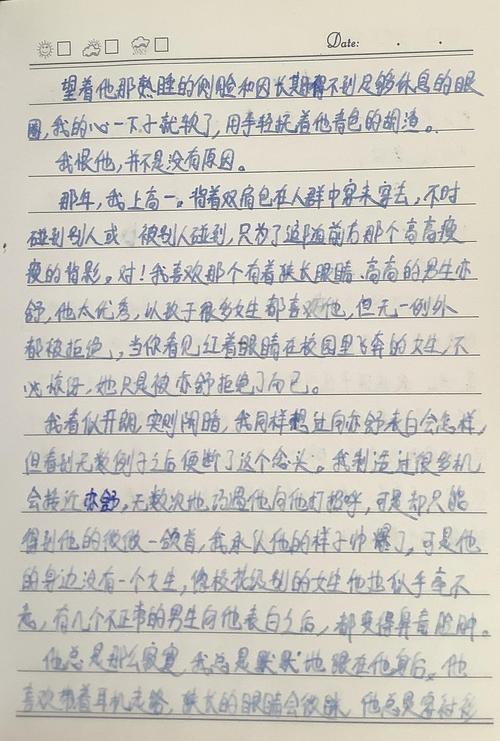 Date:
望着他那熟睡的侧脸和因长期得不到足够休息的眼
圈,我的心一下子就软了,用手轻抚着他青色的胡渣。
我恨他,并不是没有原因。
那年,我上高一。背着双肩包在人群中穿来穿去,不时
碰到别人或被别人碰到,只为了追随前方那个高高瘦
瘦的背影。对!我喜欢那个有着狭长眼睛、高高的男生亦
舒,他太优秀,以致于很多女生都喜欢他,但无一例外
都被拒绝,当你看见红着眼睛在校园里飞奔的女生,不
必惊讶,她只是被亦舒拒绝了而已。
我看似开朗,实则闭暗,我同样想过向亦舒表白会怎样,
但看到无数例子之后便断了这个念头。我制造过很多机
会接近亦舒,无数次地巧遇他向他打招呼,可是却只能
得到他的微微一颔首,我承认他的样子帅爆了,可是他
的身边没有一个女生,像校花级别的女生他也似乎毫不
在意,有几个不正常的男生向他表白之后,都变得鼻青脸肿。
他总是那么寂寞,我总是默默地跟在他身后。他
喜欢带着耳机走路,狭长的眼睛会微眯,他总是穿衬衫